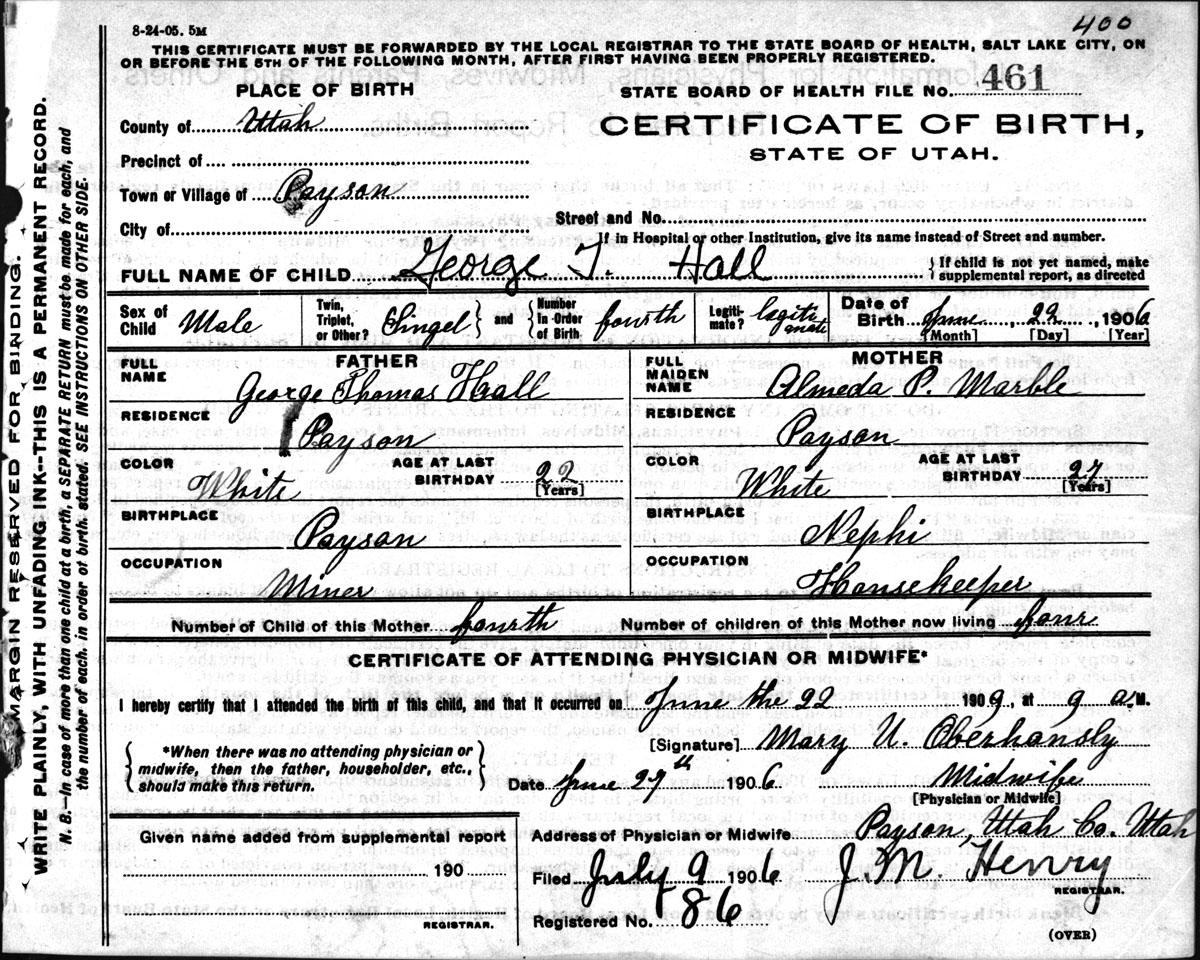 8-24-05. 5M
400
THIS CERTIFICATE MUST BE FORWARDED BY THE LOCAL REGISTRAR TO THE STATE BOARD OF HEALTH, SALT LAKE CITY, ON
OR BEFORE THE 5TH OF THE FOLLOWING MONTH, AFTER FIRST HAVING BEEN PROPERLY REGISTERED.
PLACE OF BIRTH
STATE BOARD OF HEALTH FILE NO. 461
County of Utah
CERTIFICATE OF BIRTH,
STATE OF UTAH.
Precinct of
Town or Village of Payson
Street and No.
City of
If in Hospital or other Institution, give its name instead of Street and number.
FULL NAME OF CHILD George T. Hall
If child is not yet named, make
supplemental report, as directed
Sex of Child Male
Twin, Triplet, or Other? Singel
and
Number in Order of Birth fourth
Legiti-mate? legitimate
Date of Birth June, 22, 1906
[Month] [Day] [Year]
FATHER
FULL NAME George Thomas Hall
RESIDENCE Payson
COLOR White
AGE AT LAST BIRTHDAY 22
[Years]
BIRTHPLACE Payson
OCCUPATION Miner
MOTHER
FULL MAIDEN NAME Almeda P. Marble
RESIDENCE Payson
COLOR White
AGE AT LAST BIRTHDAY 27
[Years]
BIRTHPLACE Nephi
OCCUPATION Housekeeper
Number of Child of this Mother fourth
Number of children of this Mother now living four
CERTIFICATE OF ATTENDING PHYSICIAN OR MIDWIFE*
I hereby certify that I attended the birth of this child, and that it occurred on June the 22 1909, at 9 a M.
*When there was no attending physician or
midwife, then the father, householder, etc.,
should make this return.
[Signature] Mary U. Oberhansly
Date June 27th 1906
Midwife
[Physician or Midwife]
Given name added from supplemental report
190
REGISTRAR.
Address of Physician or Midwife Payson, Utah Co. Utah
Filed July 9 1906 J. M. Henry
REGISTRAR.
Registered No. 86
(OVER)
MARGIN RESERVED FOR BINDING.
WRITE PLAINLY, WITH UNFADING INK--THIS IS A PERMANENT RECORD.
N. B.--In case of more than one child at a birth, a SEPARATE RETURN must be made for each, and
the number of each, in order of birth, stated. SEE INSTRUCTIONS ON OTHER SIDE.